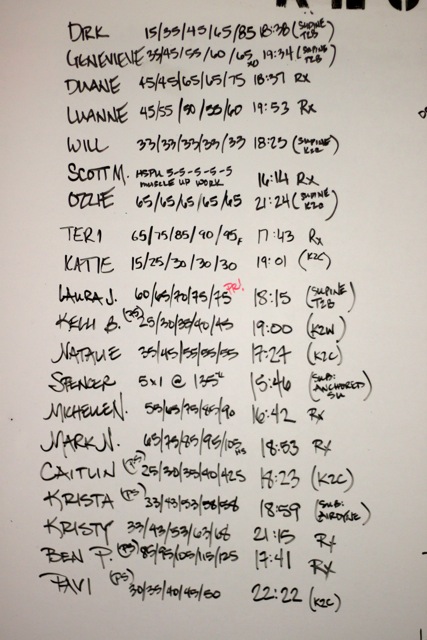 DIRK 15/35/45/65/85 18:38 (SUPINE T2B)
GENEVIEVE 35/45/55/60/65 19:34 (SUPINE T2B)
DUANE 45/45/65/65/75 18:37 RX
LUANNE 45/55/50/55/60 19:53 RX
WILL 33/33/33/33/33 18:23 (SUPINE K2C)
SCOTT M. HSPU 5-5-5-5-5 16:14 RX
MUSCLE UP WORK
OZZIE 65/65/65/65/65 21:24 (SUPINE)
TERI 65/75/85/90/95F 17:43 Rx
KATIE 15/25/30/30/30 19:01 (K2C)
LAURA J. 60/65/70/75/75 PR! 18:15 (SUPINE T2B)
KELLI B. 25/30/35/40/45 19:00 (K2W)
NATALIE 35/45/55/55/55 17:27 (K2C)
SPENCER 5x1 @ 135# 15:46 (SUB: ANCHORED SU)
MICHELLE N. 55/65/75/85/90 16:42 RX
MARK N. 65/75/85/95/105 18:53 RX
CAITLIN (PS) 25/30/35/40/425 18:23 (K2C)
KRISTA (PS) 33/43/53/58/58 18:59 (SUB: AIRDYNE)
KRISTY 33/43/53/63/68 21:15 RX
BEN P. (PS) 85/95/105/115/125 17:41 RX
PAVI (PS) 30/35/40/45/50 22:22 (K2C)